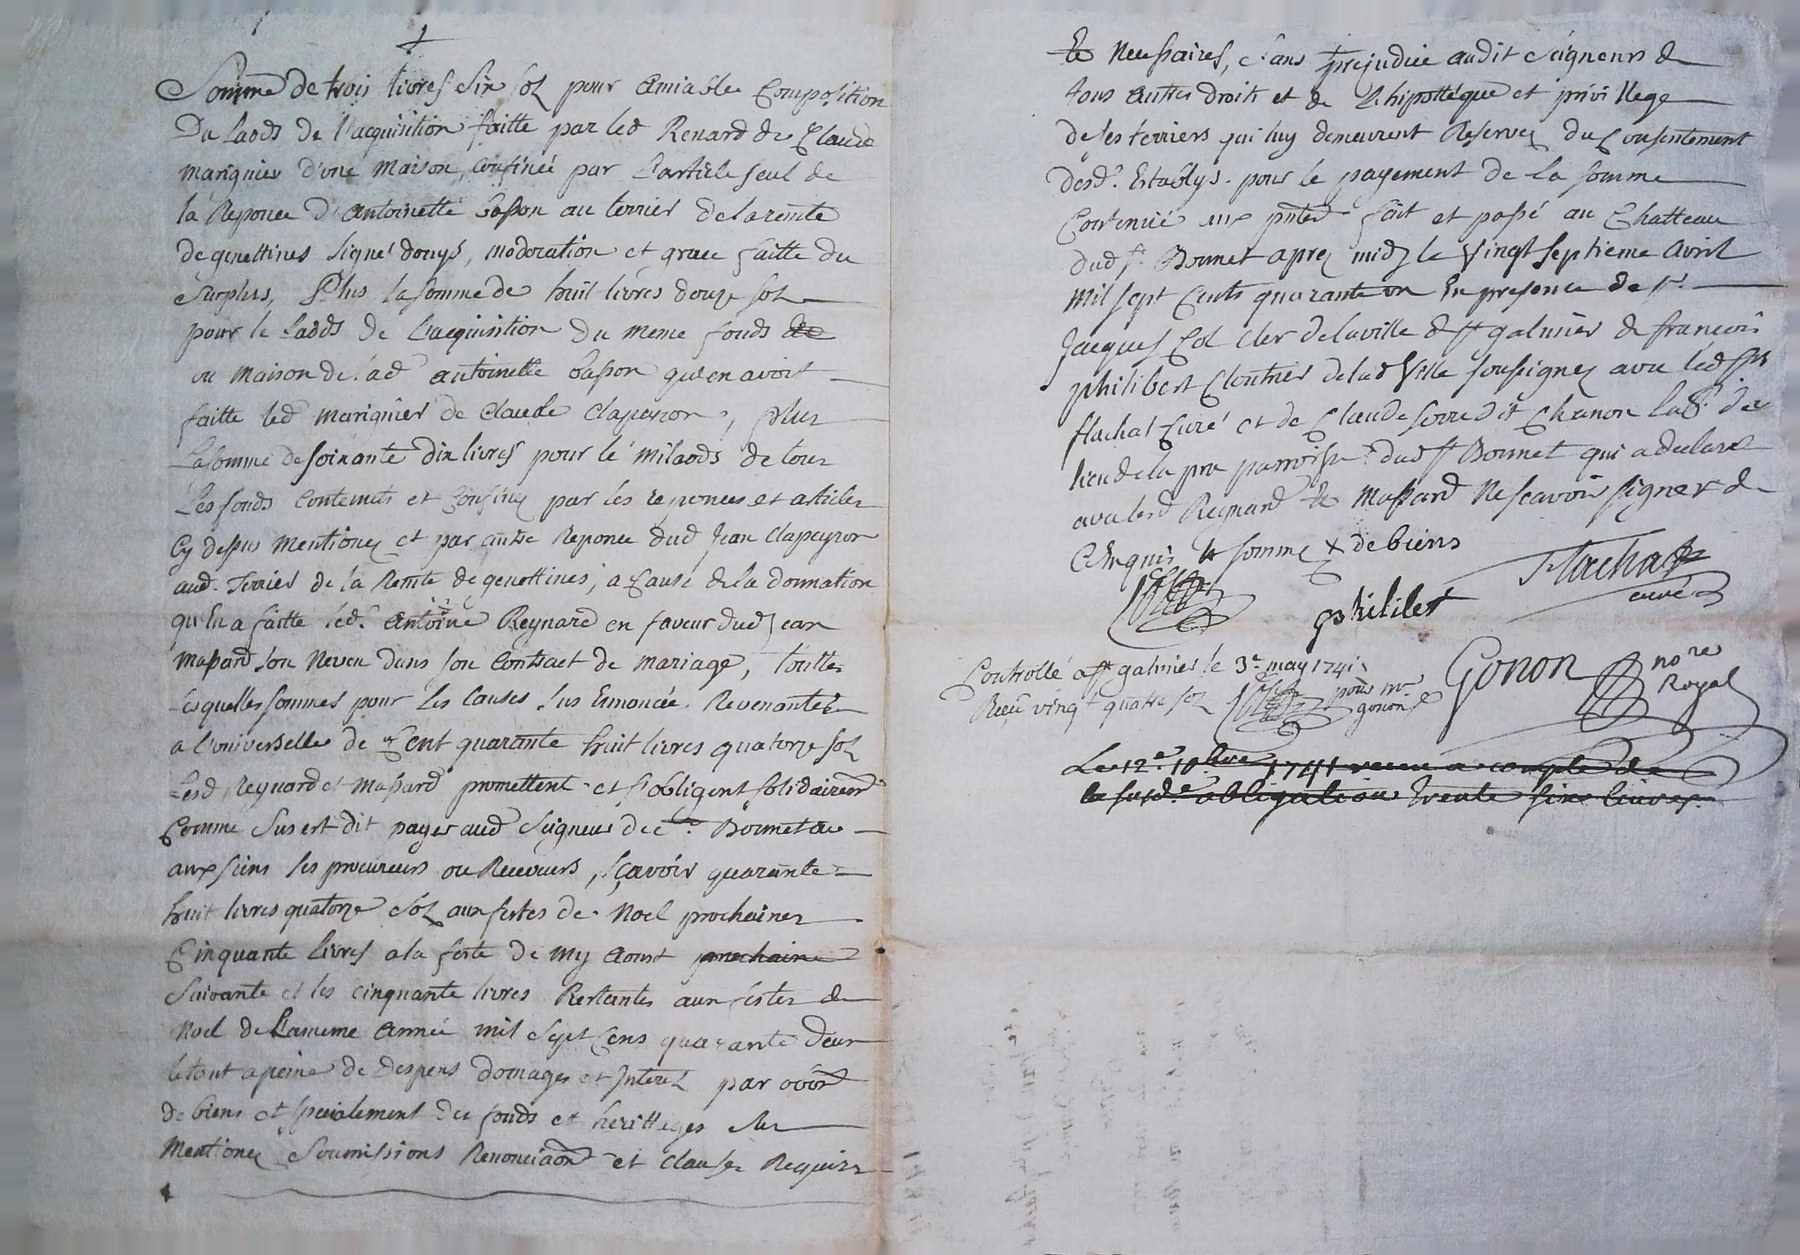 Somme de trois livres six sol pour amiable Composition
Du Laods de l'acquisition faitte par led Renard de Claude
marignier d'une maison, confinée par l'article seul de
la Reponce d'antoinette basson au terrier de la rente
de genettines signé donys, moderation et grace faitte du
Surplus, Plus la somme de huit livres douze sol
pour le Laods de l'acquisition du meme fonds de
ou maison de lad antoinette basson qu'en avoit
faitte led marignier de Claude Clapeyron, plus
La somme de soixante dix livres pour le milaods de tous
Les fonds contenuts et confinez par les reponces et articles
Cy dessus mentionez et par autre Reponce dud Jean Clapeyron
aud. Terrier de la Rente de genettines, a Cause de la donnation
qu'en a faitte led. Antoine Reynard en faveur dud Jean
Massard son Neveu dans son contract de mariage, touttes
Lesquelles sommes pour les causes sus Ennoncée Revenantes
a l'universelle de Cent quarante huit livres quatorze sol
Lesd Reynard et Massard promettent et s'obligent solidairemt
Comme Sus est dit payer aud Seigneur de St. Bonnet ou
aux siens ses procureurs ou Receveurs, sçavoir quarante
huit livres quatorze sol aux festes de Noel prochaines
Cinquante livres a la feste de my Aoust prochaine
Suivante et les cinquante livres Restantes aux festes de
Noel de La meme année mil sept Cens quarante deux
le tout a peine de despens domages et Interez par
de biens et specialement des fonds et herittages sus
Mentionez Soumissions Renonciaõn et clauses Requises
et Necessaires, sans prejudice audit Seigneur de
tous autres droits et de L'hipottéque et privillege
de ses terriers qui luy demeurent Reservez du Consentement
desd. Establys. pour le payement de La somme
Contenue aux pntes fait et passé au Chatteau
dud St. Bonnet aprez midy le Vingt septieme Avril
mil sept Cents quarante un En presence de sr.
Jacques Col Cler de la ville de st galmier de françois
philibert Cloutrier de lad Ville soussignez avec led sr
flachat Curé et de Claude serre dit Chanon de
lieu de la parroisse dud st Bonnet qui a declaré
avec lesd Reynard & Massard Ne scavoir signer de
Ce Enquis & somme de biens
philibert
Flachat
curé
Controllé a st galmier le 3e. may 1741
Reçu vingt quatre sol
pour mr
gonon
Gonon nore
Royal
Le 12e. 10bre 1741 receu a compte de
la susd.e obligation trente six livres